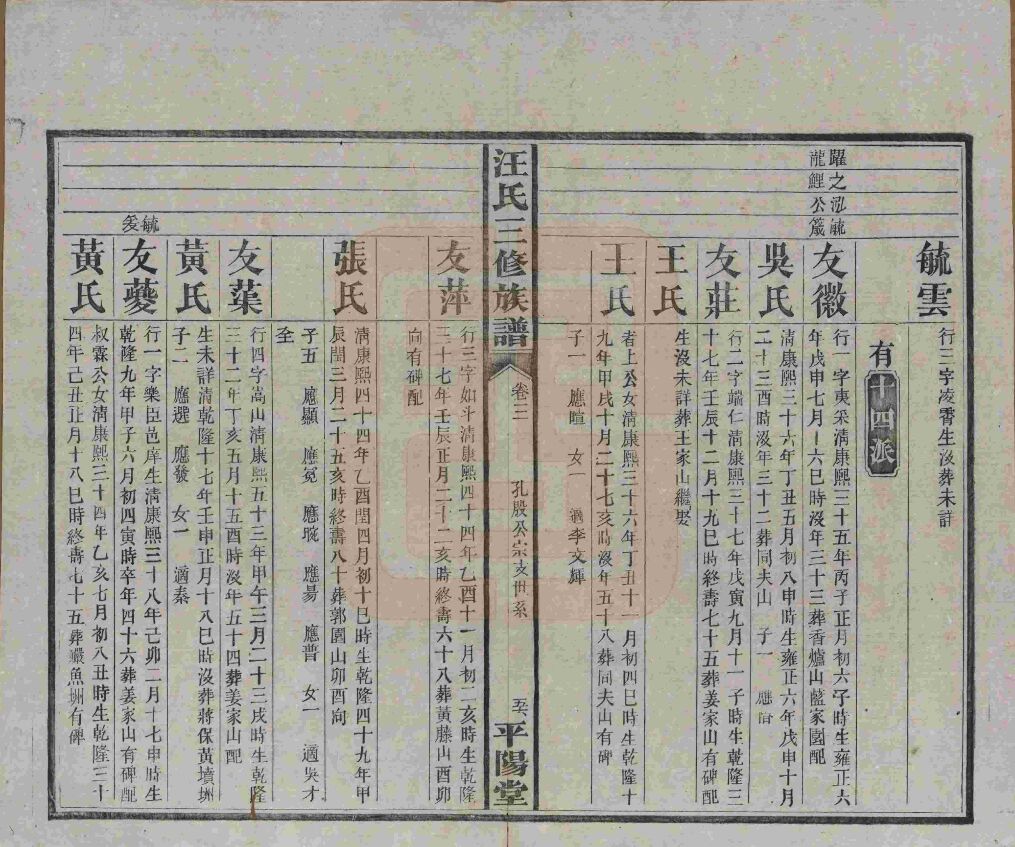 毓雲
行三字凌霄生沒葬未詳
有十四派
躍之泓毓
龍鯉公箴
友徽
行一字庚采清康熙三十五年丙子正月初六子時生雍正六
年戊申七月十六巳時沒年三十三葬香爐山藍家園配
吳氏
清康熙三十六年丁丑五月初八申時生雍正六年戊申十月
二十三酉時沒年三十二葬同夫山 子一 應
友莊
行二字端仁清康熙三十七年戊寅九月十一子時生乾隆三
十七年壬辰十二月十九巳時終壽七十五葬姜家山有碑配
王氏
生沒未詳葬王家山繼娶
王氏
者上公女清康熙三十六年丁丑十一月初四巳時生乾隆十
九年甲戌十月二十七亥時沒年五十八葬同夫山有碑
子一 應暄 女一 適李文輝
汪氏三修族譜
卷三
孔殷公宗支世系
平陽堂
友萍
行三字如斗清康熙四十四年乙酉十一月初二亥時生乾隆
三十七年壬辰正月二十二亥時終壽六十八葬黃藤山酉卯
向有碑配
張氏
清康熙四十四年乙酉閏四月初十巳時生乾隆四十九年甲
辰閏三月二十五亥時終壽八十葬郭園山卯酉向
子五 應顯 應冕 應璇 應昜 應普 女一 適吳才
全
友葉
行四字嵩山清康熙五十三年甲午三月二十三戌時生乾隆
三十二年丁亥五月十五酉時沒年五十四葬姜家山配
黃氏
生未詳清乾隆十七年壬申正月十八巳時沒葬蔣保黃墳坳
子二 應選 應發 女一 適秦
毓
爰
友夔
行一字樂臣邑庠生清康熙三十八年己卯二月十七申時生
乾隆九年甲子六月初四寅時卒年四十六葬姜家山有碑配
黃氏
叔霖公女清康熙三十四年乙亥七月初八丑時生乾隆三十
四年己丑正月十八巳時終壽七十五葬巖魚坳有碑